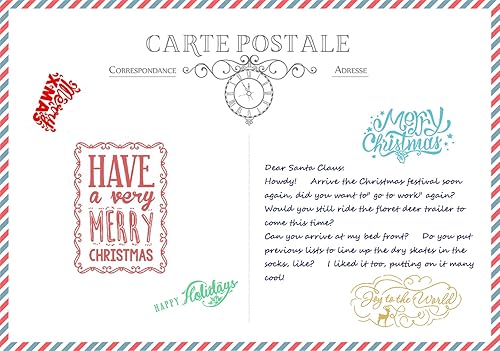 CARTE POSTALE
CORRESPONDANCE ADRESSE
Merry
X-MAS
HAVE
a very
MERRY
CHRISTMAS
HAPPY Holidays
Merry
Christmas
Dear Santa Claus:
Howdy! Arrive the Christmas festival soon
again, did you want to" go to work" again?
Would you still ride the floret deer trailer to
come this time?
Can you arrive at my bed front? Do you put
previous lists to line up the dry skates in the
socks, like? I liked it too, putting on it many
cool!
Joy to the World